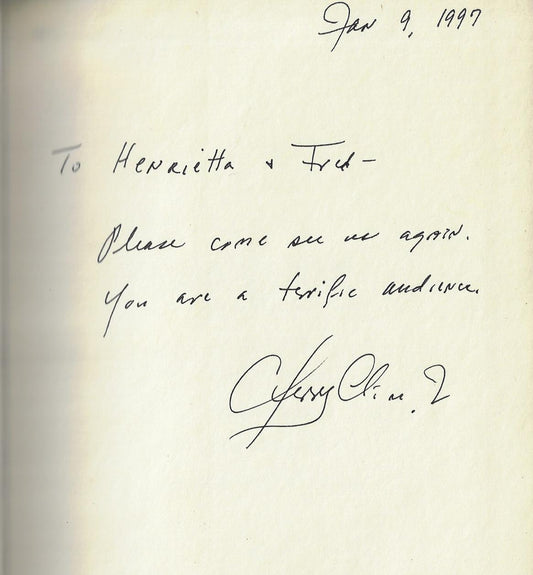 Jan 9, 1997
To Henrietta + Fred-
Please come see us again.
You are a terrific audience.